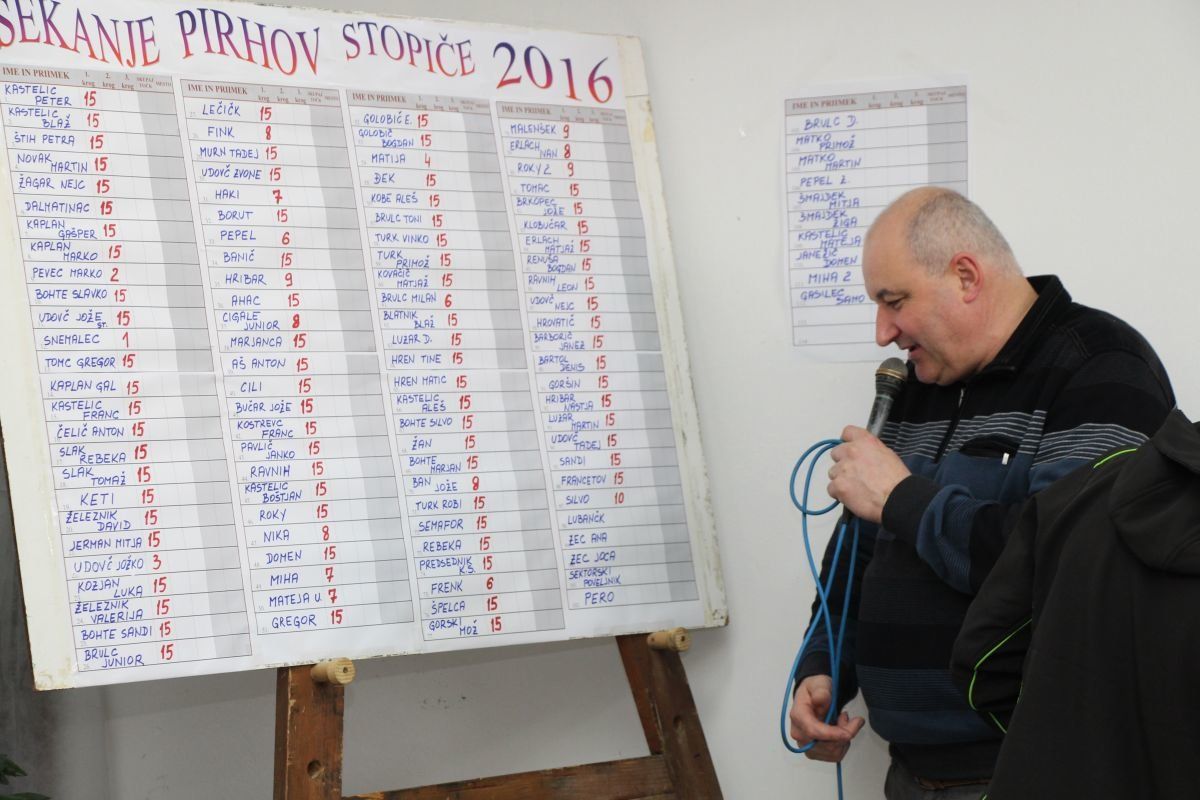 SEKANJE PIRHOV STOPIČE 2016
IME IN PRIIMEK 1. krog 2. krog 3. krog SKUPAJ TOČK MESTO
KASTELIC PETER 15
KASTELIC BLAŽ 15
ŠTIH PETRA 15
NOVAK MARTIN 15
ŽAGAR NEJC 15
DALMATINAC 15
KAPLAN GAŠPER 15
KAPLAN MARKO 15
PEVEC MARKO 2
BOHTE SLAVKO 15
UDOVČ JOŽE ST. 15
SNEMALEC 1
TOMC GREGOR 15
KAPLAN GAL 15
KASTELIC FRANC 15
ČELIČ ANTON 15
SLAK REBEKA 15
SLAK TOMAŽ 15
KETI 15
ŽELEZNIK DAVID 15
JERMAN MITJA 15
UDOVČ JOŽKO 3
KOZJAN LUKA 15
ŽELEZNIK VALERIJA 15
BOHTE SANDI 15
BRULC JUNIOR 15
IME IN PRIIMEK 1. krog 2. krog 3. krog SKUPAJ TOČK MESTO
LEČIČK 15
FINK 8
MURN TADEJ 15
UDOVČ ZVONE 15
HAKI 7
BORUT 15
PEPEL 6
BANIČ 15
HRIBAR 9
AHAC 15
CIGALE JUNIOR 8
MARJANCA 15
AŠ ANTON 15
CILI 15
BUČAR JOŽE 15
KOSTREVC FRANC 15
PAVLIČ JANKO 15
RAVNIH 15
KASTELIC BOŠTJAN 15
ROKY 15
NIKA 8
DOMEN 15
MIHA 7
MATEJA U. 7
GREGOR 15
IME IN PRIIMEK 1. krog 2. krog 3. krog SKUPAJ TOČK MESTO
GOLOBIČ E. 15
GOLOBIČ BOGDAN 15
MATIJA 4
ĐEK 15
KOBE ALEŠ 15
BRULC TONI 15
TURK VINKO 15
TURK PRIMOŽ 15
KOVAČIČ MATJAŽ 15
BRULC MILAN 6
BLATNIK BLAŽ 15
LUZAR D. 15
HREN TINE 15
HREN MATIC 15
KASTELIC ALEŠ 15
BOHTE SILVO 15
ŽAN 15
BOHTE MARJAN 15
BAN JOŽE 8
TURK ROBI 15
SEMAFOR 15
REBEKA 15
PREDSEDNIK K.S. 15
FRENK 6
ŠPELCA 15
GORSKI MOŽ 15
IME IN PRIIMEK 1. krog 2. krog 3. krog SKUPAJ TOČK MESTO
MALENŠEK 9
ERLACH IVAN 8
ROKY 2 9
TOMAC 15
BRKOPEC JOŽE 15
KLOBUČAR 15
ERLACH MATJAŽ 15
RENUŠA BOGDAN 15
RAVNIH LEON 15
UDOVČ NEJC 15
HROVATIČ 15
BARBORIČ JANEZ 15
BARTOL DENIS 15
GORŠIN 15
HRIBAR NASTJA 15
LUZAR MARTIN 15
UDOVČ TADEJ 15
SANDI 15
FRANCETOV 15
SILVO 10
LUBANČK
ZEC ANA
ZEC JOCA
SEKTORSKI POVELJNIK
PERO
IME IN PRIIMEK 1. krog 2. krog 3. krog SKUPAJ TOČK MESTO
BRULC D.
MATKO PRIMOŽ
MATKO MARTIN
PEPEL 2.
ŠMAJDEK MITJA
ŠMAJDEK ŽIGA
KASTELIC MATEJA
JANEŽIČ DOMEN
MIHA 2
GASILEC SAMO